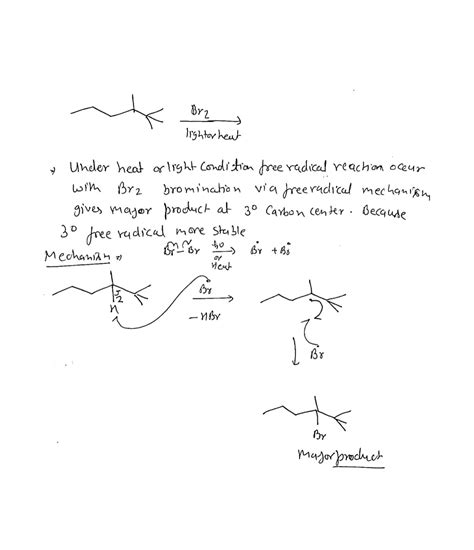 Br2
lightorheat
Under heat or light Condition free radical reaction occur
with Br2 bromination via freeradical mechanism
gives major product at 3° Carbon center. Because
3° free radical more stable
Mechanism
Br-Br hν or Heat Br + Br
H Br -HBr
Br
Br
Major product